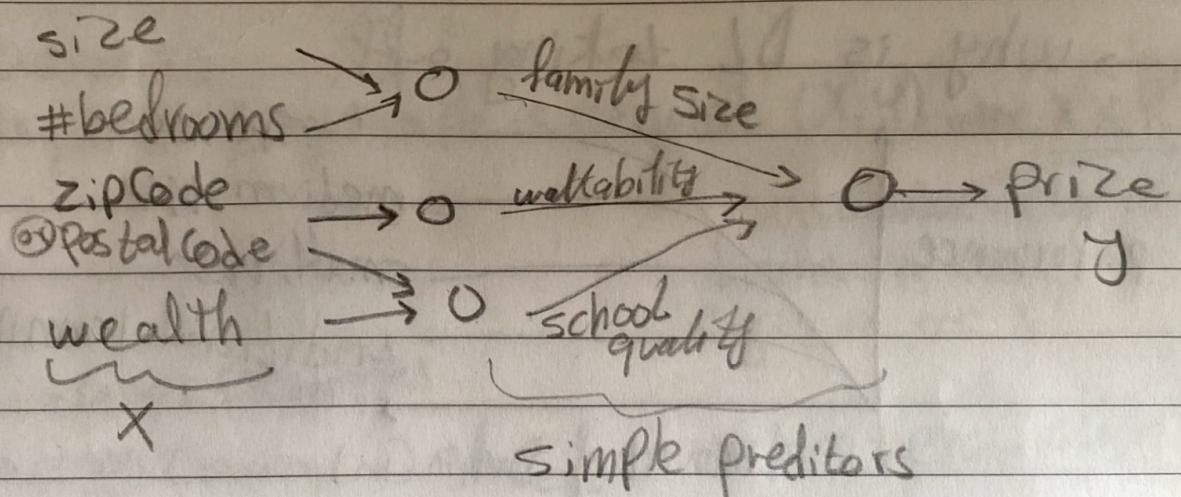 size
#bedrooms
zipCode
(or) PostalCode
wealth
X
family size
walkability
school
quality
prize
y
simple preditors